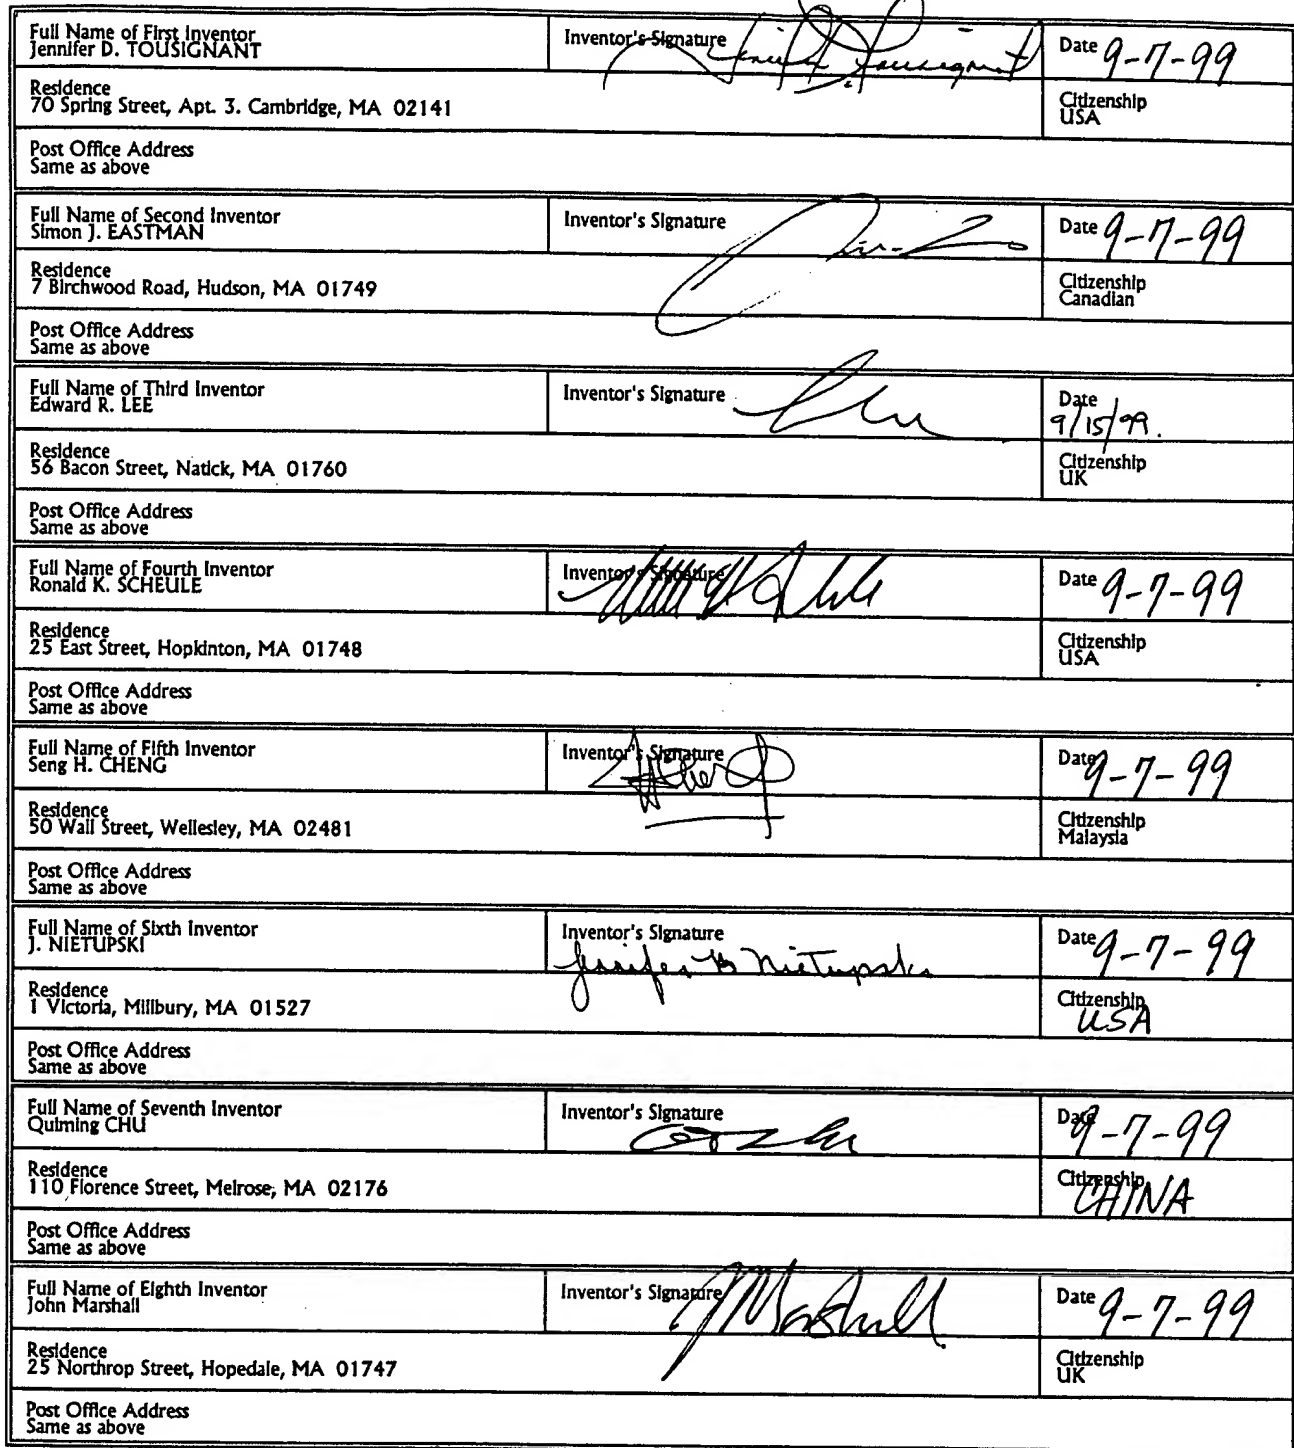 Full Name of First Inventor
Jennifer D. TOUSIGNANT
Inventor's Signature
Jennifer D. Tousignant
Date 9-7-99
Residence
70 Spring Street, Apt. 3. Cambridge, MA 02141
Citizenship
USA
Post Office Address
Same as above
Full Name of Second Inventor
Simon J. EASTMAN
Inventor's Signature
Date 9-7-99
Residence
7 Birchwood Road, Hudson, MA 01749
Citizenship
Canadian
Post Office Address
Same as above
Full Name of Third Inventor
Edward R. LEE
Inventor's Signature
Date
9/15/99.
Residence
56 Bacon Street, Natick, MA 01760
Citizenship
UK
Post Office Address
Same as above
Full Name of Fourth Inventor
Ronald K. SCHEULE
Inventor's Signature
Date 9-7-99
Residence
25 East Street, Hopkinton, MA 01748
Citizenship
USA
Post Office Address
Same as above
Full Name of Fifth Inventor
Seng H. CHENG
Inventor's Signature
Date 9-7-99
Residence
50 Wall Street, Wellesley, MA 02481
Citizenship
Malaysia
Post Office Address
Same as above
Full Name of Sixth Inventor
J. NIETUPSKI
Inventor's Signature
Jennifer B Nietupski
Date 9-7-99
Residence
1 Victoria, Millbury, MA 01527
Citizenship
USA
Post Office Address
Same as above
Full Name of Seventh Inventor
Quiming CHU
Inventor's Signature
Date 9-7-99
Residence
110 Florence Street, Melrose, MA 02176
Citizenship
CHINA
Post Office Address
Same as above
Full Name of Eighth Inventor
John Marshall
Inventor's Signature
J Marshall
Date 9-7-99
Residence
25 Northrop Street, Hopedale, MA 01747
Citizenship
UK
Post Office Address
Same as above